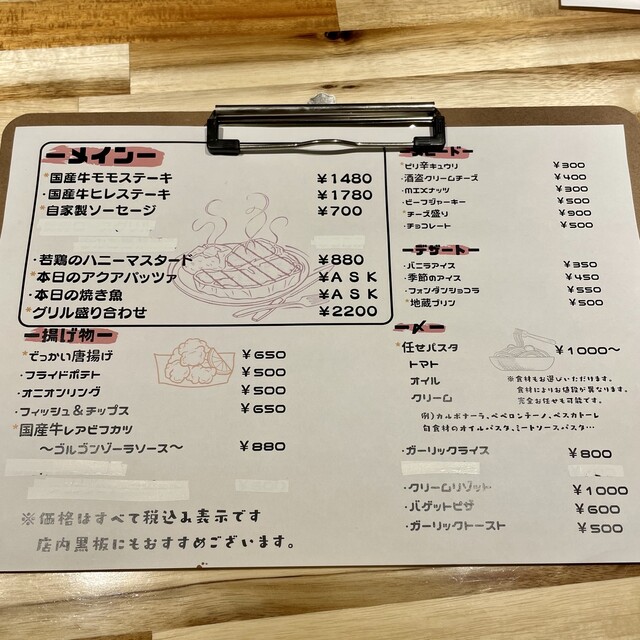 ーメインー
*国産牛モモステーキ ¥1480
・国産牛ヒレステーキ ¥1780
*自家製ソーセージ ¥700
・若鶏のハニーマスタード ¥880
*本日のアクアパッツァ ¥ASK
・本日の焼き魚 ¥ASK
*グリル盛り合わせ ¥2200
ー揚げ物ー
*でっかい唐揚げ ¥650
・フライドポテト ¥500
・オニオンリング ¥500
・フィッシュ&チップス ¥650
*国産牛レアビフカツ
〜ゴルゴンゾーラソース〜 ¥880
※価格はすべて税込み表示です
店内黒板にもおすすめございます。
ピードー
*ピリ辛キュウリ ¥300
・酒盗クリームチーズ ¥400
・MIXナッツ ¥300
・ビーフジャーキー ¥500
*チーズ盛り ¥900
・チョコレート ¥500
ーデザートー
・バニラアイス ¥350
*季節のアイス ¥450
・フォンダンショコラ ¥550
*地蔵プリン ¥500
ー〆ー
*任せパスタ ¥1000〜
トマト
オイル
クリーム
※食材もお選びいただけます。
食材によりお値段が異なります。
完全お任せも可能です。
例)カルボナーラ、ペペロンチーノ、ペスカトーレ
旬食材のオイルパスタ、ミートソースパスタ…
・ガーリックライス ¥800
・クリームリゾット ¥1000
・バゲットピザ ¥600
・ガーリックトースト ¥500